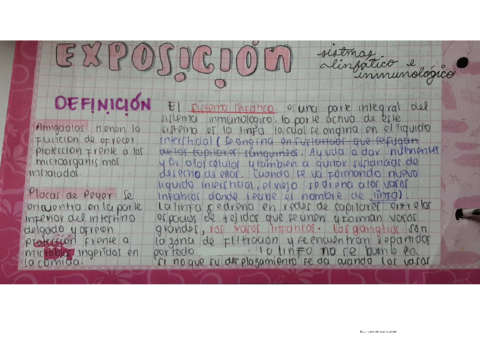 EXPOSICIÓN
sistemas
linfático e
inmunológico
DEFINICIÓN
El sistema linfático es una parte integral del
sistema inmunológico. la parte activa de este
sistema es la linfa la cual se origina en el líquido
intersticial (se origina en sustancias que
de los capilares sanguíneos. Ayuda a dar nutrientes
y O₂ a las células y también a quitar sustancias de
desecho de ellas. Cuando se va formando nuevo
líquido intersticial, el viejo se drena a los vasos
linfáticos donde recibe el nombre de linfa).
La linfa se drena en redes de capilares entre los
espacios de tejidos que se unen y forman vasos
grandes, los vasos linfáticos. los ganglios son
la zona de filtración y se encuentran repartidos
por todo la linfa no se bombea
si no que su desplazamiento se da cuando los vasos
Amigdalas tienen la
función de ofrecer
protección frente a los
microorganismos
inhalados.
Placas de Peyer se
encuentra en la parte
inferior del intestino
delgado y ofrecen
protección frente a
microbios ingeridos en
la comida.